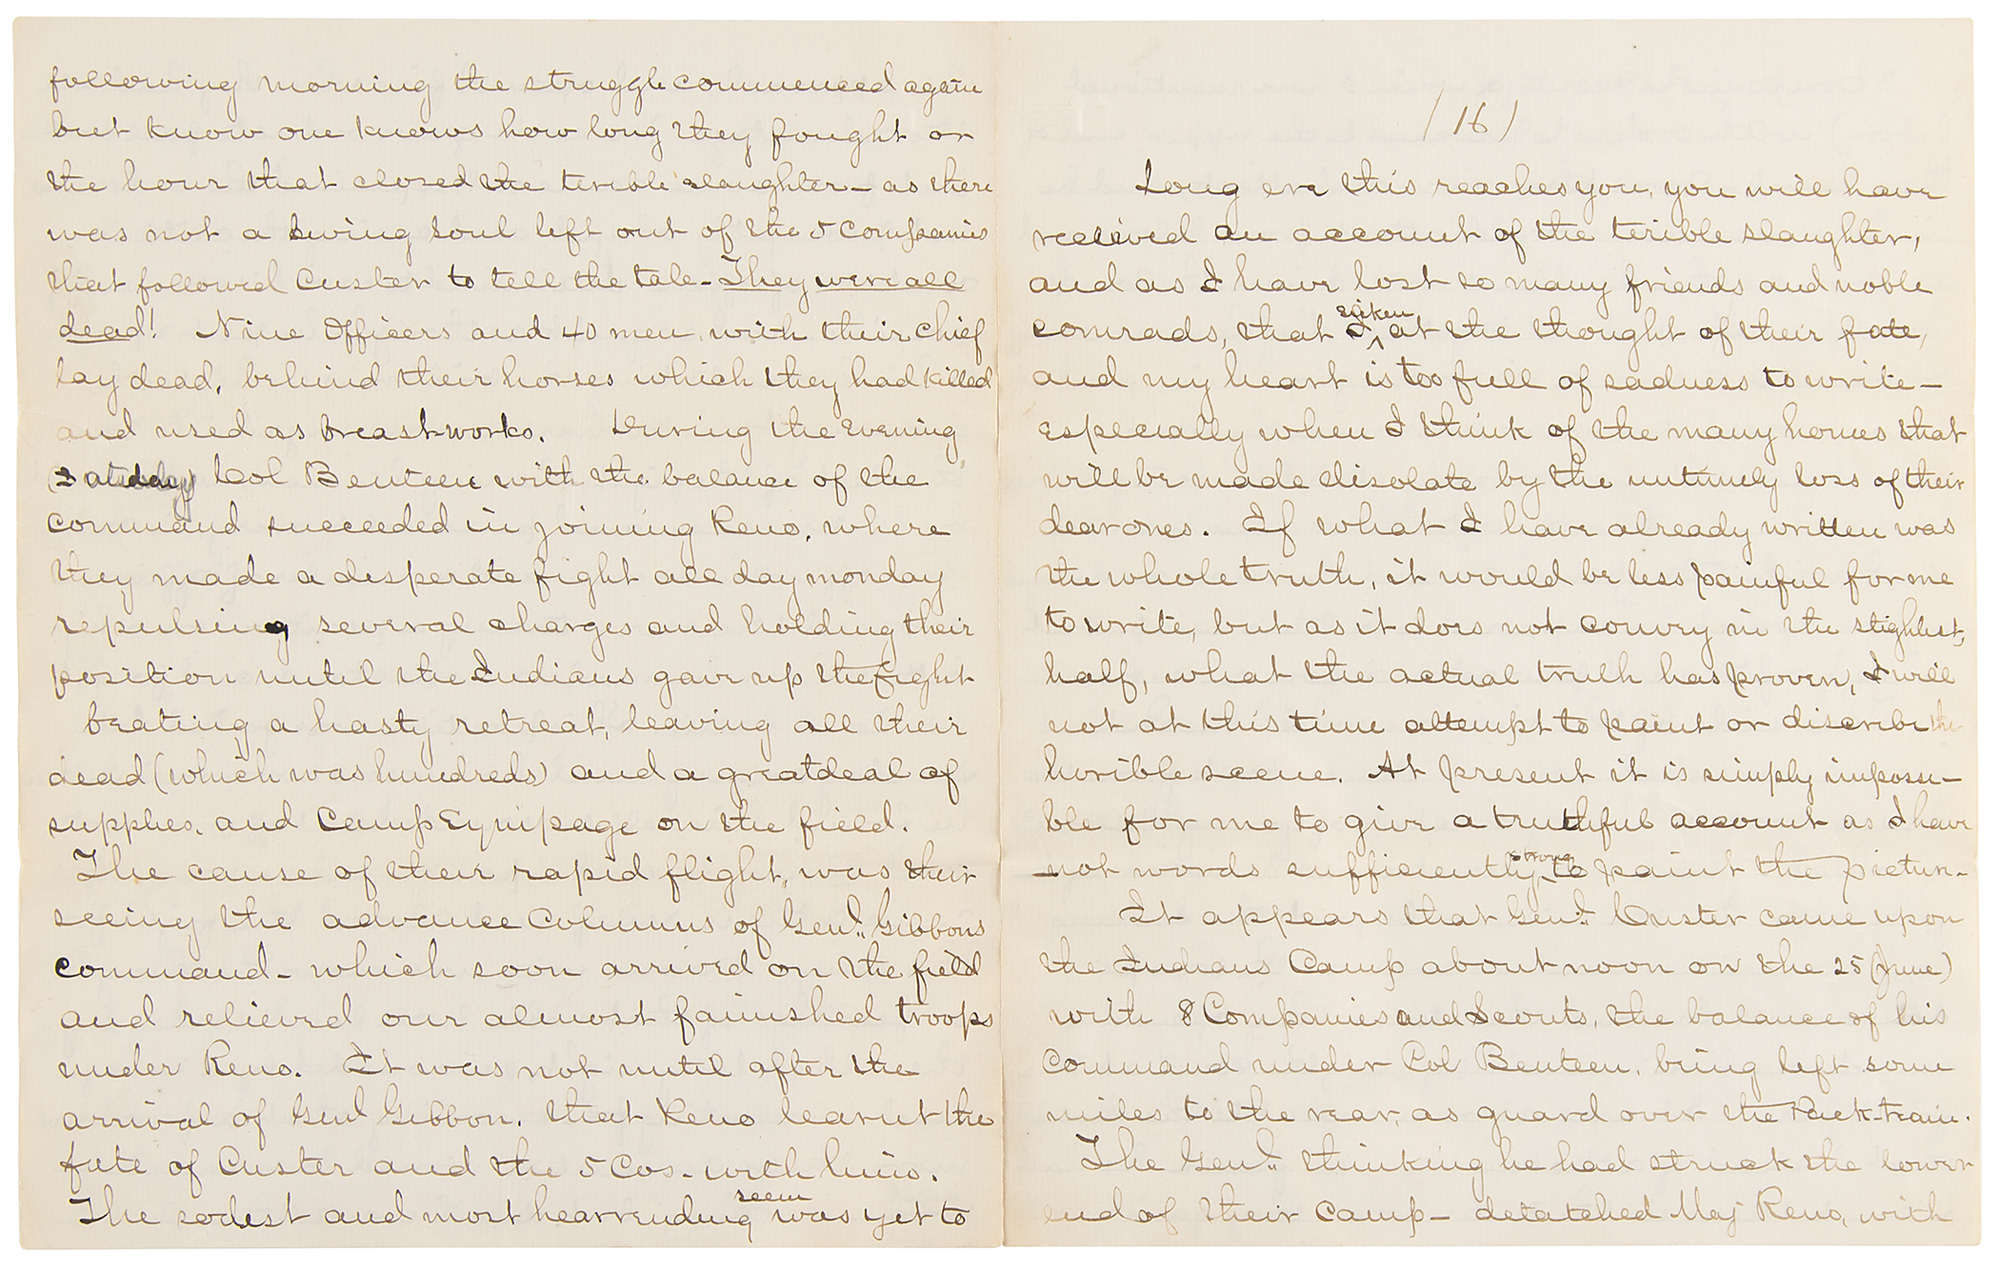 following morning the struggle commenced again
but know one knows how long they fought or
the hour that closed the terible slaughter – as there
was not a living soul left out of the 5 Companies
that followed Custer to tell the tale – They were all
dead! Nine Officers and 40 men with their chief
lay dead, behind their horses which they had killed
and used as breastworks. During the Evening
Col Benteen with the balance of the
command succeeded in joining Reno, where
they made a desperate fight all day monday
repulseing several charges and holding their
position until the Indians gave up the fight
beating a hasty retreat, leaving all their
dead (which was hundreds) and a great deal of
supplies, and Camp Equipage on the field.
The cause of their rapid flight, was their
seeing the advance Columns of Genl. Gibbons
command – which soon arrived on the field
and relieved our almost famished troops
under Reno. It was not until after the
arrival of Genl Gibbon, that Reno learnt the
fate of Custer and the 5 Cos – with him.
The sadest and most hearrending seem was yet to
/16/
Long ere this reaches you, you will have
received an account of the terible slaughter,
and as I have lost so many friends and noble
comrads, that I siken at the thought of their fate,
and my heart is too full of sadness to write –
especially when I think of the many homes that
will be made disolate by the untimely loss of their
dear ones. If what I have already written was
the whole truth, it would be less painful for me
to write, but as it does not convey in the slightest,
half, what the actual truth has proven, I will
not at this time attempt to paint or discribe the
horible scene. At present it is simply impossi-
ble for me to give a truthful account as I have
not words sufficiently strong to paint the picture –
It appears that Genl. Custer came upon
the Indians Camp about noon on the 25 (June)
with 8 Companies and Scouts, the balance of his
command under Col Benteen, being left some
miles to the rear, as guard over the Pack-train.
The Genl. thinking he had struck the lower
end of their camp – detatched Maj Reno, with